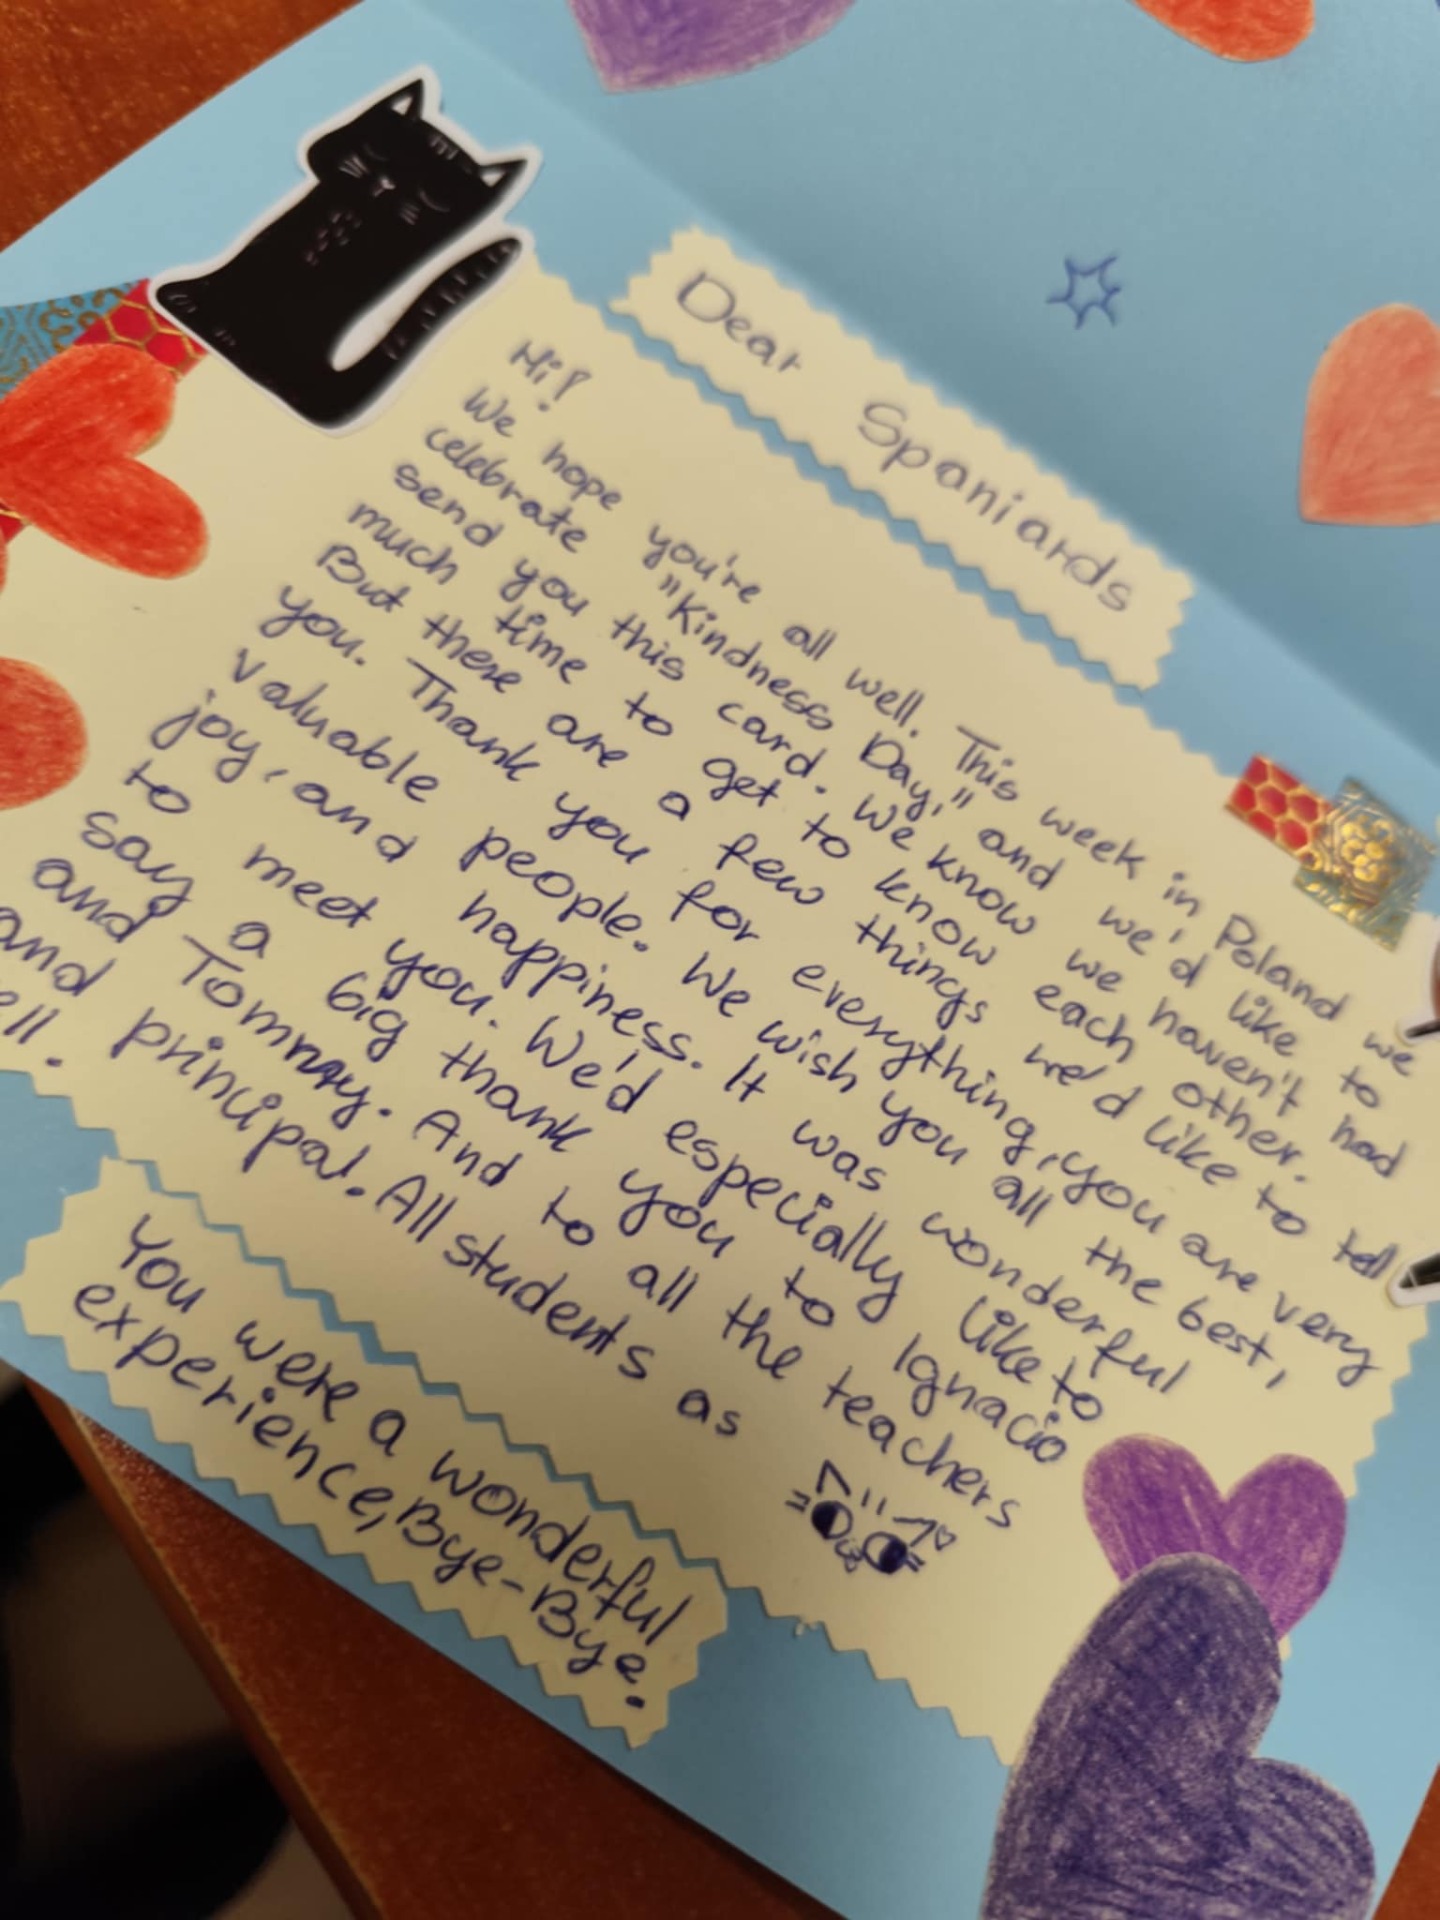 Dear Spaniards
Hi!
We hope you're all well. This week in Poland we
celebrate "Kindness Day," and we'd like to
send you this card. We know we haven't had
much time to get to know each other.
But there are a few things we'd like to tell
you. Thank you for everything, you are very
valuable people. We wish you all the best,
joy, and happiness. It was wonderful
to meet you. We'd especially like to
say a big thank you to Ignacio
and Tommy. And to all the teachers
and principal. All students as
You were a wonderful
experience, Bye-Bye.